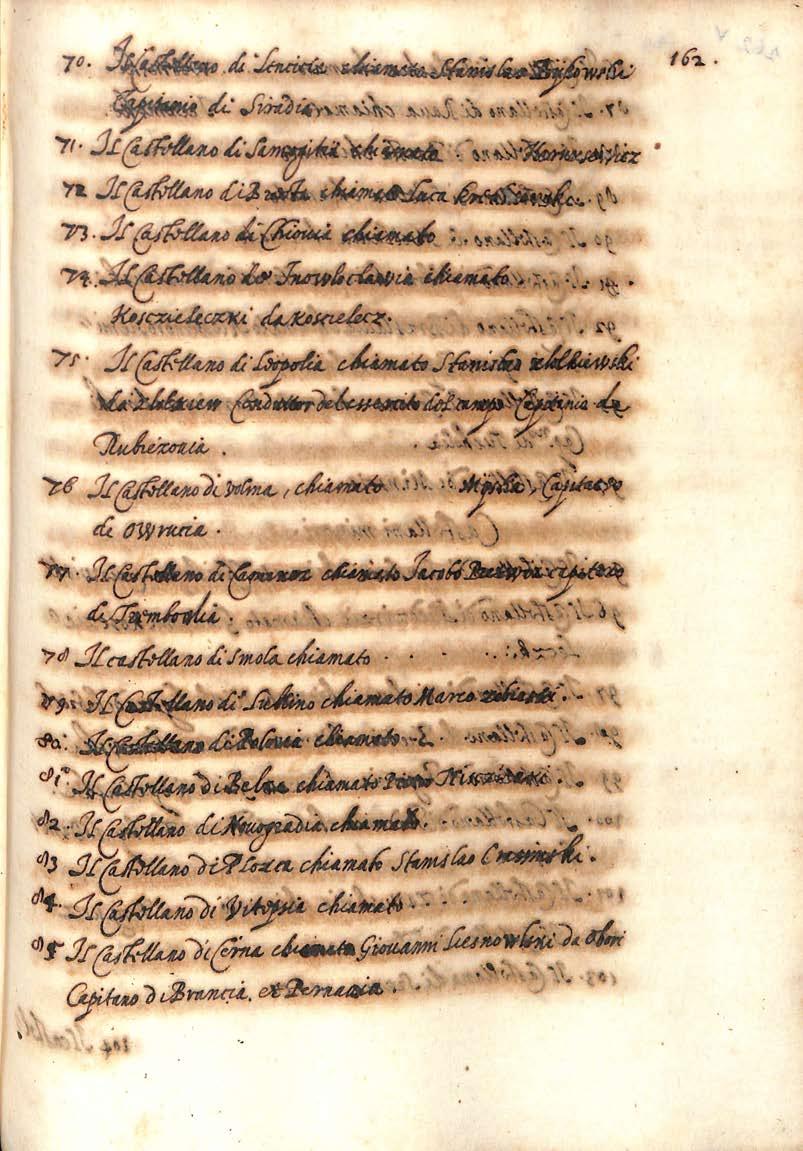 162.
70. Il Castellano di Lencicia chiamato Stanislao Bykowski
Capitanio di Siradia
71. Il Castellano di Samogitia chiamato
72 Il Castellano di Bresta chiamato Luca
73. Il Castellano di Chiovia chiamato
74. Il Castellano de Inowloclawia chiamato
Kosczieleczki da Koscielecz.
75. Il Castellano di Leopolia chiamato Stanislao zholkiewski
da Zholkiew Conduttor del essercito del campo Capitanio de
Rubiezovia.
76 Il Castellano di Volma, chiamato Capitaneo
de Owrucia.
77. Il Castellano di Camenez chiamato Jacobo capitaneo
de Tremboulia.
78 Il castellano di Smola chiamato . . . .
79. Il Castellano di Lublino chiamato Marco
80. Il Castellano di Polovia chiamato
81. Il Castellano di Belza chiamato Pietro
82. Il Castellano di Novogradia chiamato.
83 Il Castellano di Plozca chiamato Stanislao Crasinski.
84. Il Castellano di Vitepsia chiamato.
85 Il Castellano di Cerna chiamato Giovanni Lesnowlski da Obori
Capitano di Brancia, et Pernavia.